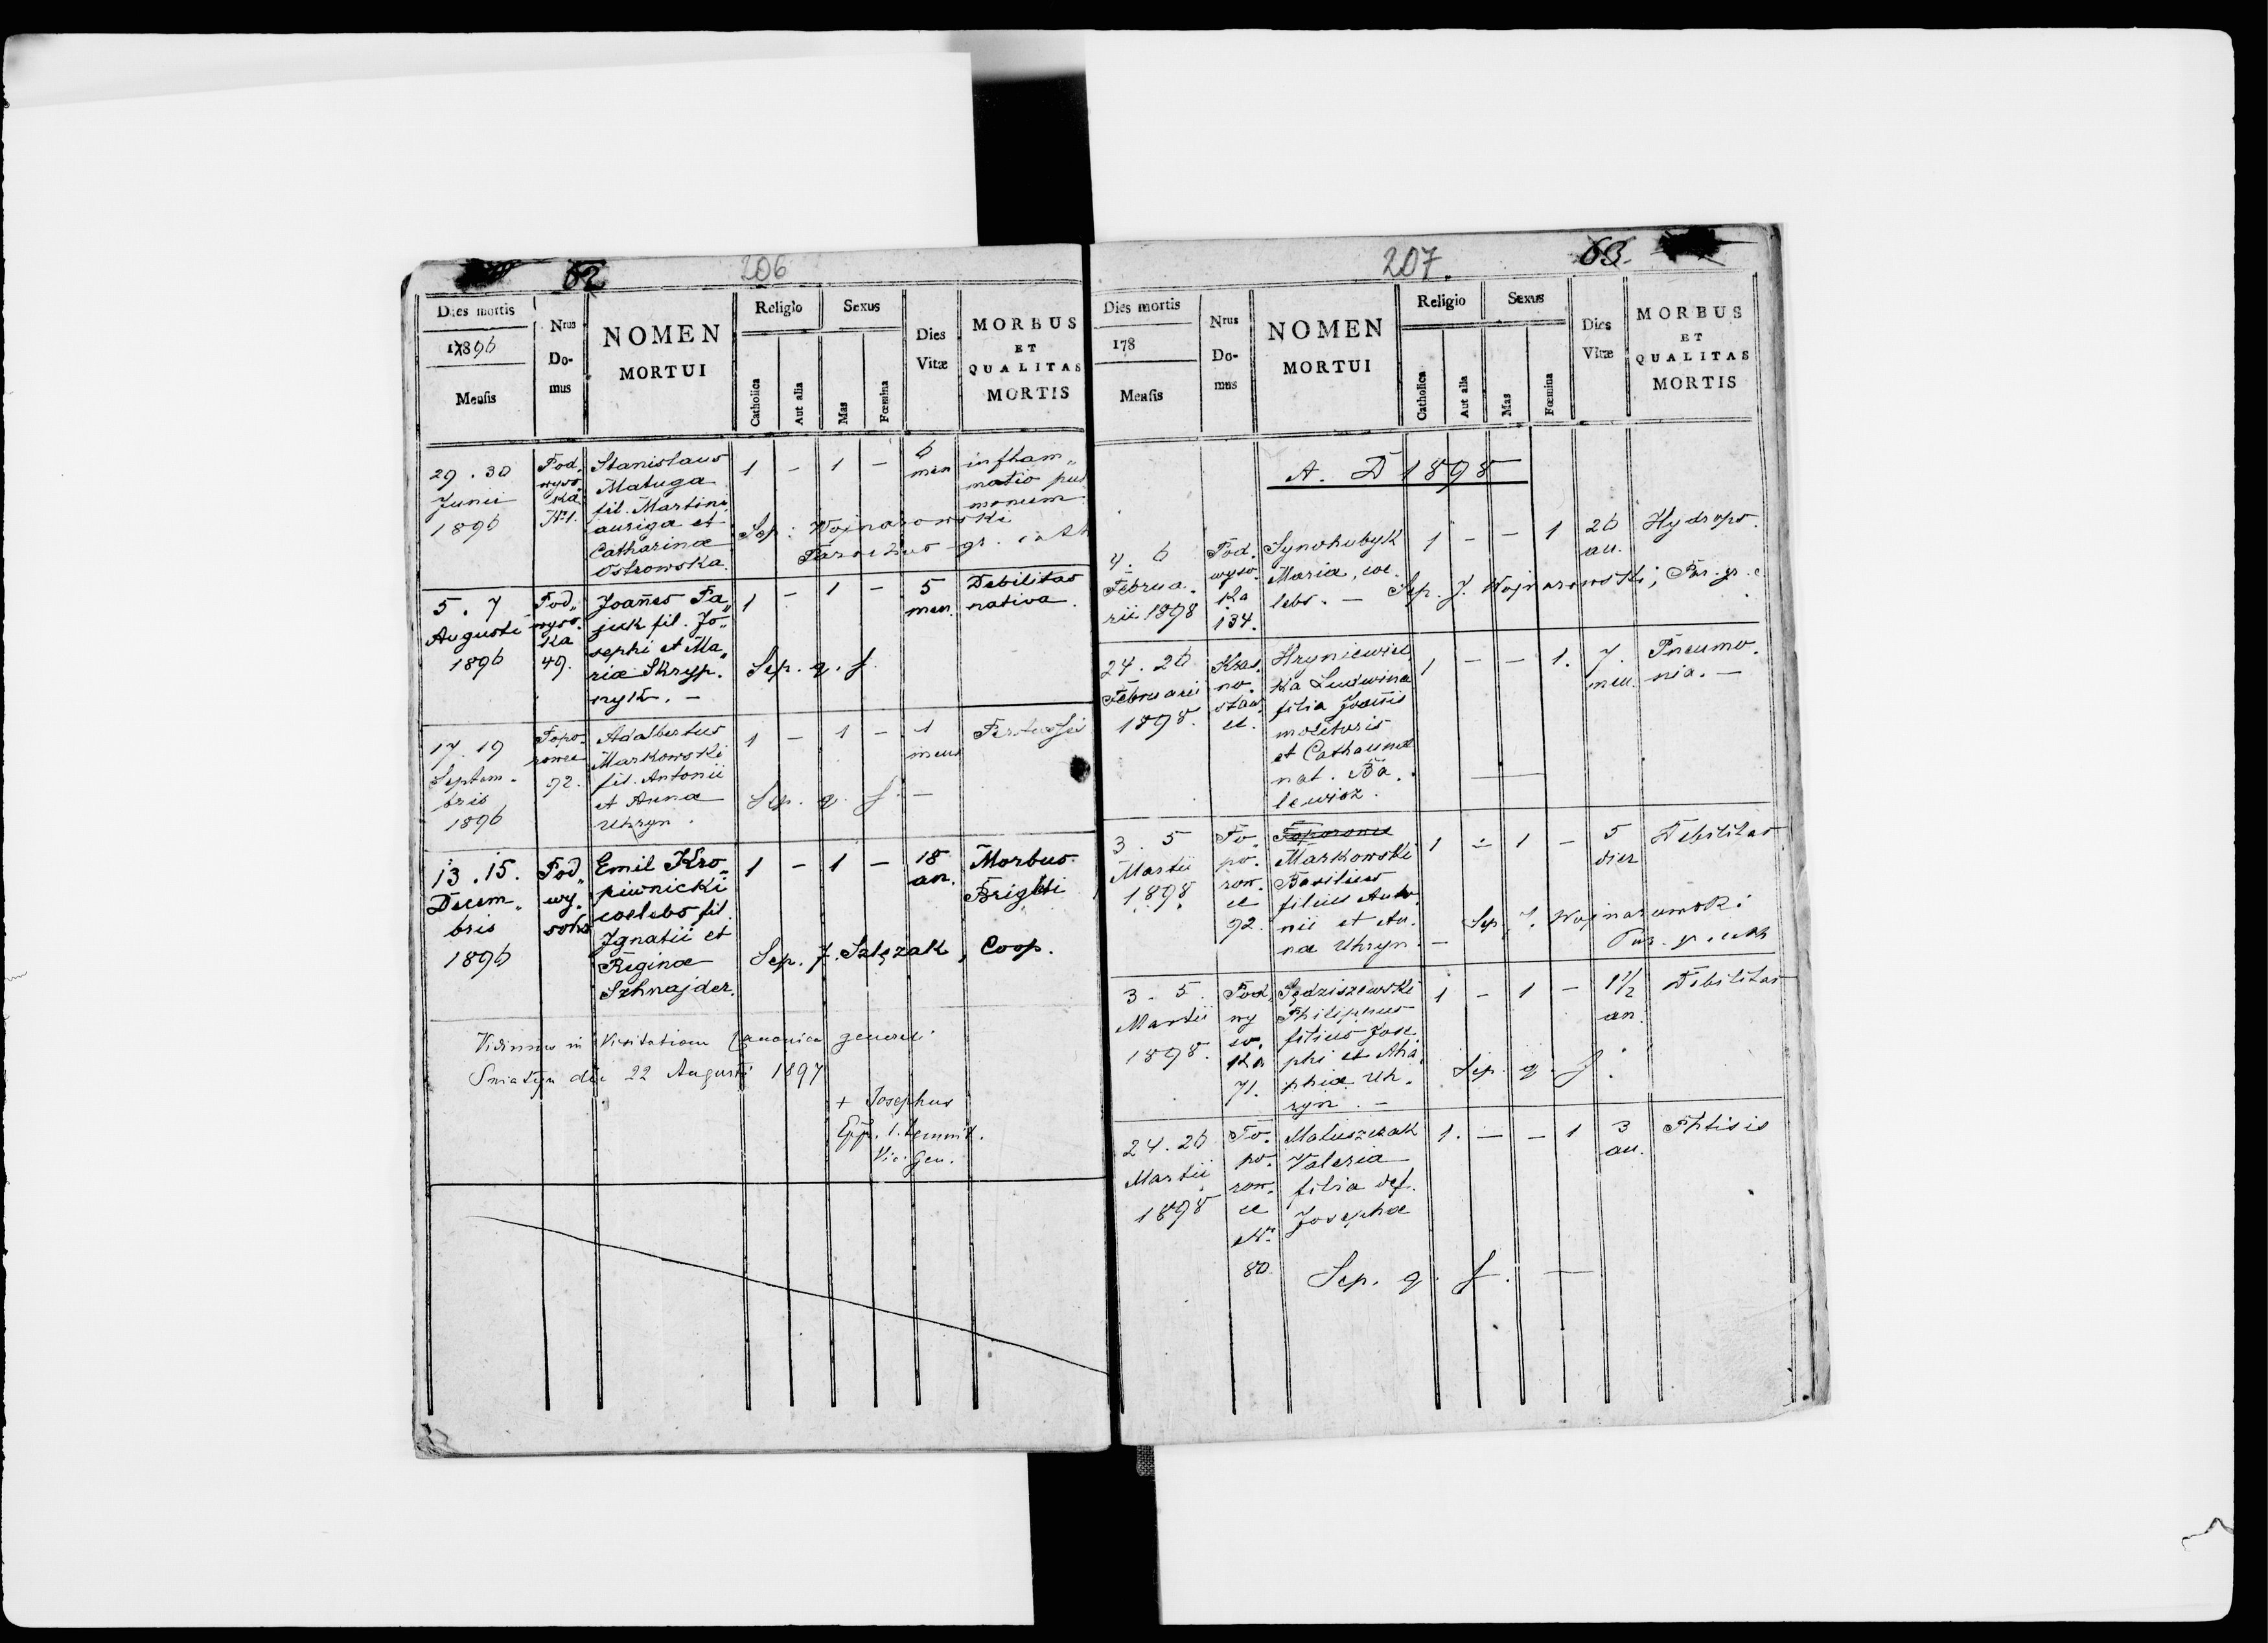 62
206
Dies mortis
17896
Mensis
Nrus
Do-
mus
NOMEN
MORTUI
Religio
Catholica
Aut alia
Sexus
Mas
Fœmina
Dies
Vitæ
MORBUS
ET
QUALITAS
MORTIS
29. 30
Junii
1896
Pod„
wyso„
ka
N.1.
Stanislaus
Matuga
fil. Martini
auriga et
Catharinæ
Ostrowska.
1 - 1 -
6
men
infham„
matio pul
monum
Sep: Wojnarowski
Parochus gr. cath
5. 7
Augusti
1896
Pod„
wyso„
ka
49.
Joañes Fa„
juk fil. Jo„
sephi et Ma„
riæ Skryp„
nyk. -
1 - 1 -
5
men.
Debilitas
nativa.
Sep. q. f.
17. 19
Septem-
bris
1896
Topo-
rowce
92.
Adalbertus
Markowski
fil. Antonii
et Annæ
Uhryn.
1 - 1 -
1
mens
Pertussis
Sep. q. f. -
13. 15.
Decem„
bris
1896
Pod„
wy„
soka
Emil Kro„
piwnicki
coelebs fil.
Ignatii et
Reginæ
Szhnajder.
1 - 1 -
18
an.
Morbus
Brighti
Sep. J. Szlęzak, Coop.
Vidimus in Visitatione Canonica generali
Sniatyn die 22 Augusti 1897
+ Josephus
Epp.
Vic. Gen.
207.
63.
Dies mortis
178
Mensis
Nrus
Do-
mus
NOMEN
MORTUI
Religio
Catholica
Aut alia
Sexus
Mas
Fœmina
Dies
Vitæ
MORBUS
ET
QUALITAS
MORTIS
A. D 1898
4. 6
Februa.
rii 1898
Pod.
wyso.
ka
134.
Synohubyk
Maria, coe.
lebs. -
1 - - 1
26
an.
Hydrops.
Sep. J. Wojnarowski, Par. gr. c.
24. 26
Februarii
1898.
Kras.
no.
staw.
ce.
Hryniewiec
ka Ludwina
filia Joañis
molitoris
et Catharinæ
nat. Ba.
lewicz.
1 - - 1.
7.
men.
Pneumo.
nia. -
3. 5
Martii
1898
To.
po.
row.
ce
92.
Toporowce
Markowski
Basilius
filius Anto.
nii et An.
næ Uhryn. -
1 - 1 -
5
dier
Debilitas
Sep. J. Wojnarowski
Par. gr. cath
3. 5.
Martii
1898.
Pod.
wy
so.
ka
71.
Sędziszewski
Philippus
filius Jose.
phi et Aha.
phiæ Uh.
ryn. -
1 - 1 -
1 1/2
an.
Debilitas
Sep. q. f.
24. 26
Martii
1898
To.
po.
row.
ce
N.
80.
Matuszczak
Valeria
filia def.
Josephæ
1. - - 1
3
an.
Phtisis
Sep. q. f. -